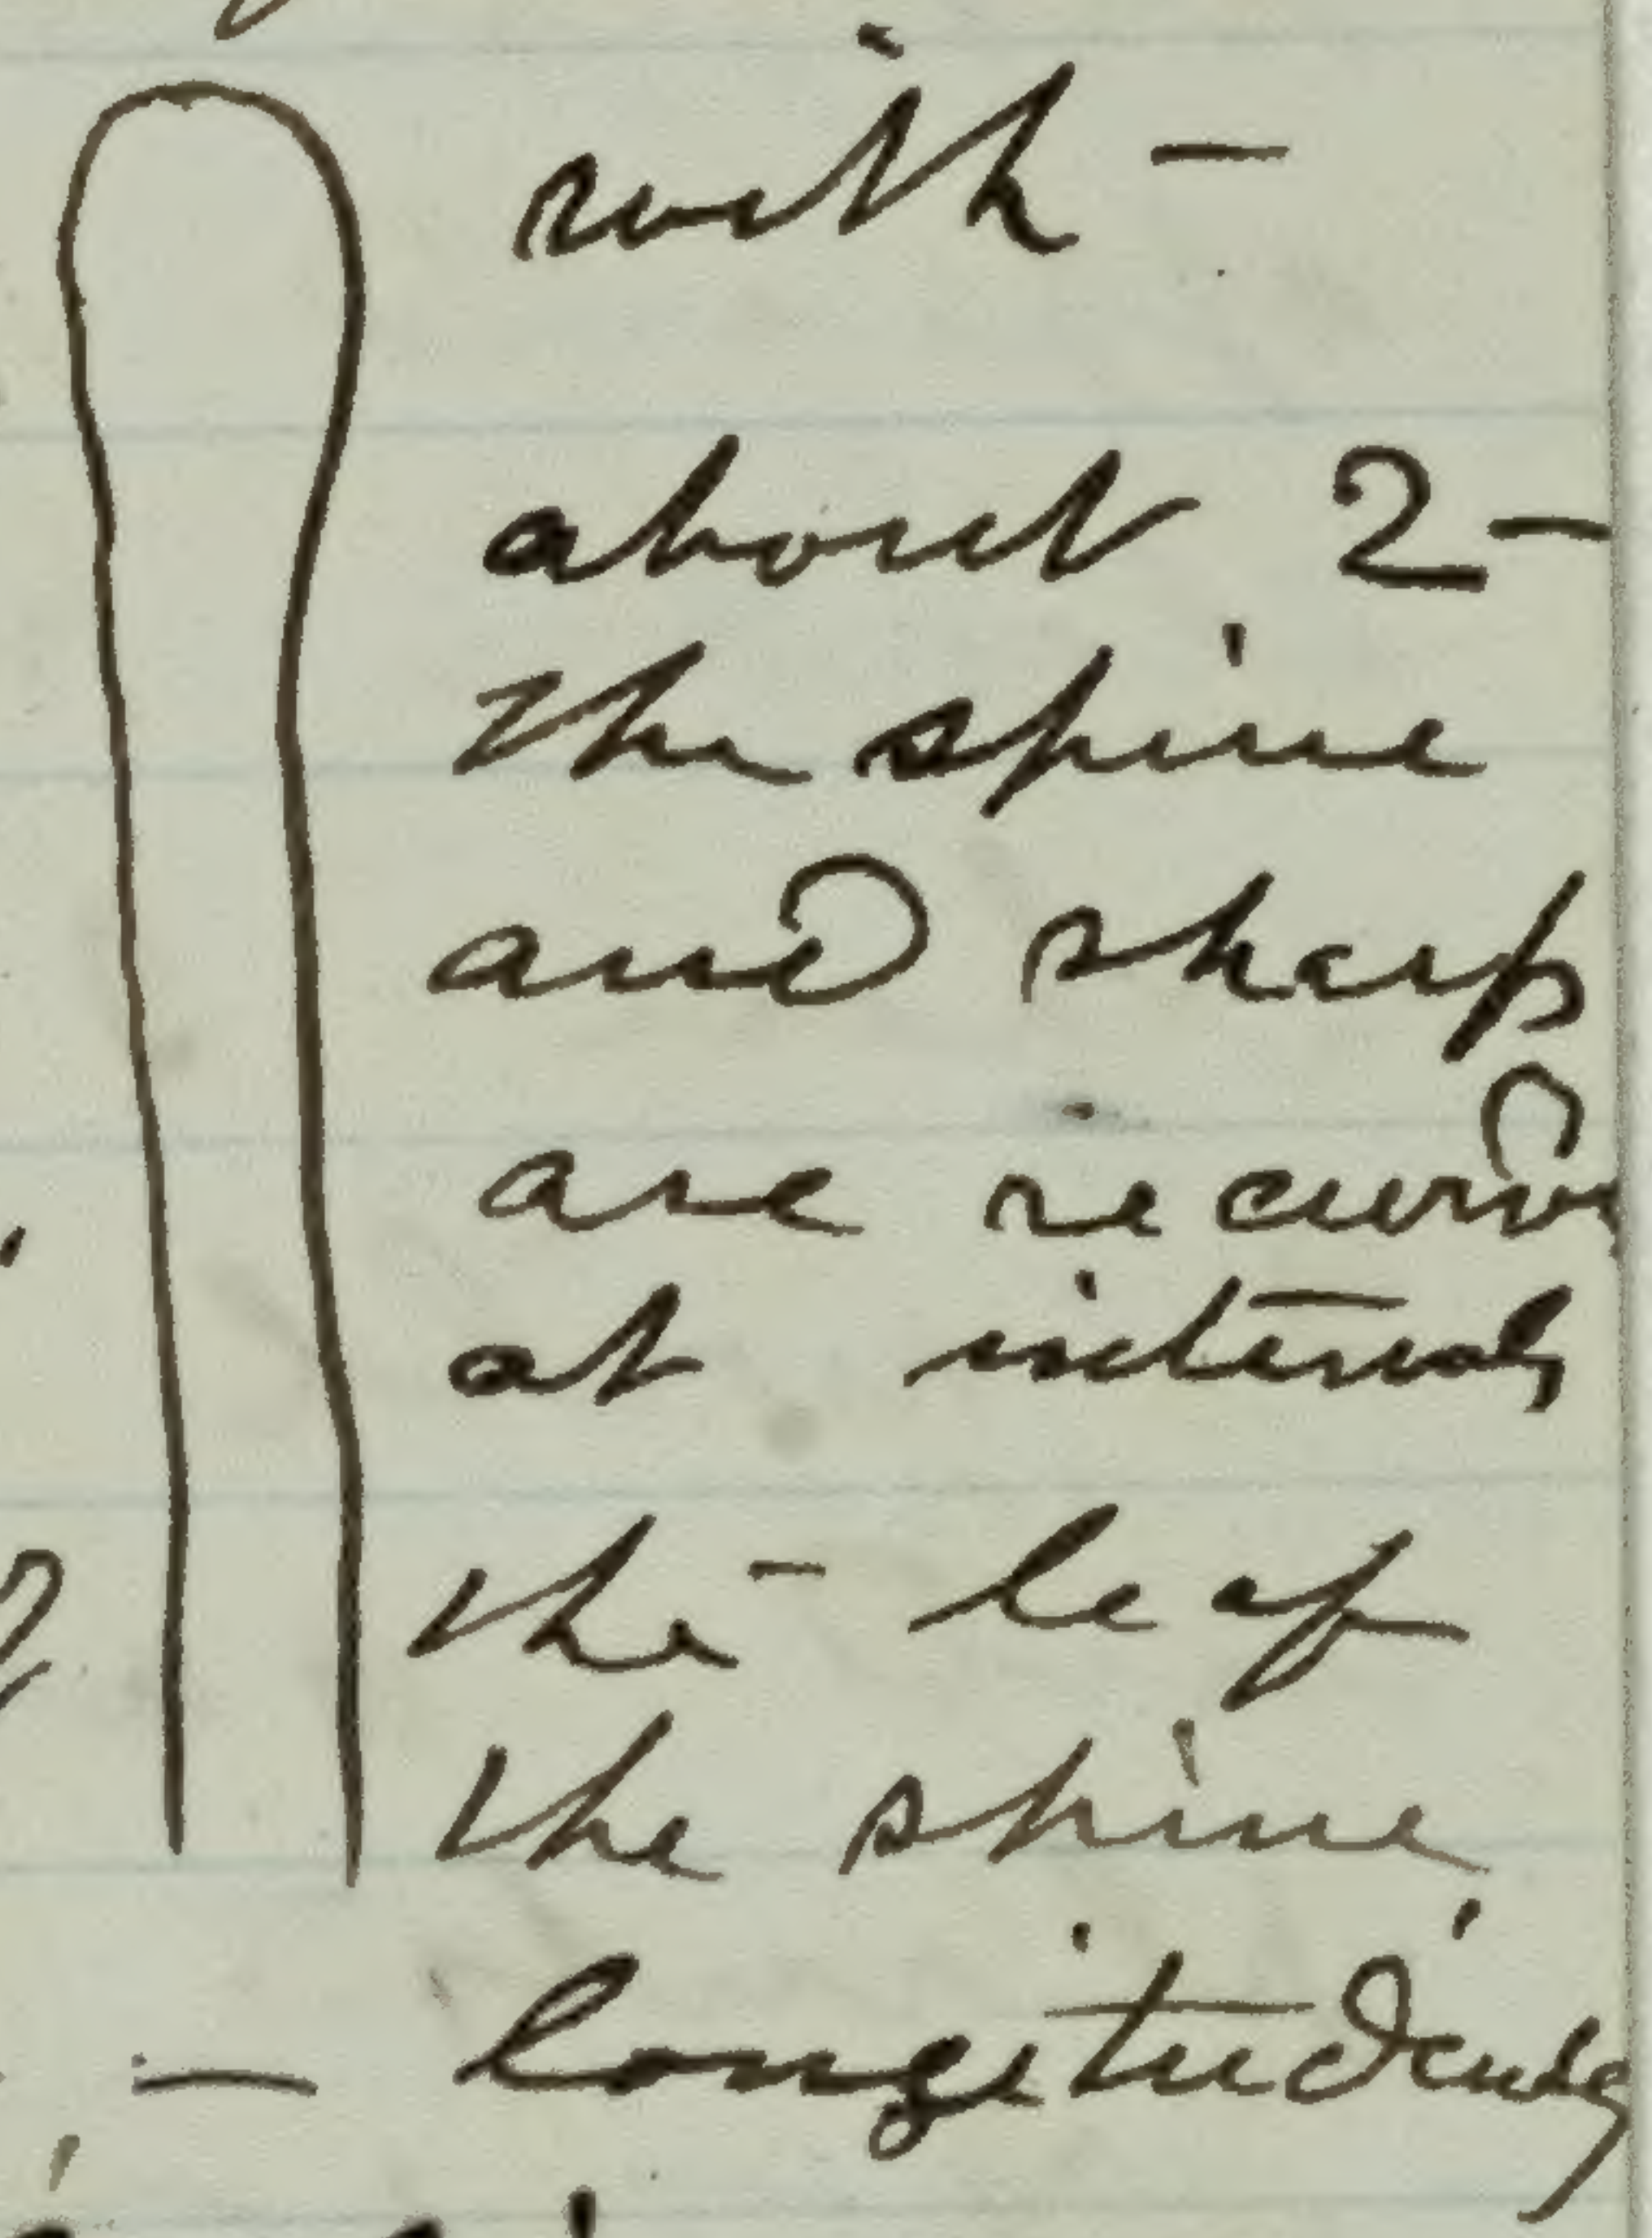 with —
about 2—
the spine
and sharp
are recurved
at intervals
the — leaf
the spine
— longitudinally